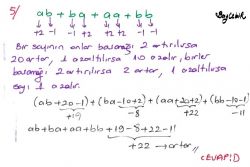 5/ ab + ba + aa + bb
+2 -1 -1 +2 +2 +2 -1 -1
Bir sayının onlar basamağı 2 artırılırsa
20 artar, 1 azaltılırsa 10 azalır, birler
basamağı 2 artırılırsa 2 artar, 1 azaltılırsa
sayı 1 azalır.
(ab+20-1) + (ba-10+2) + (aa+20+2) + (bb-10-1)
+19 -8 +22 -11
ab+ba+aa+bb +19-8+22-11
+22 → artar
CEVAP:D